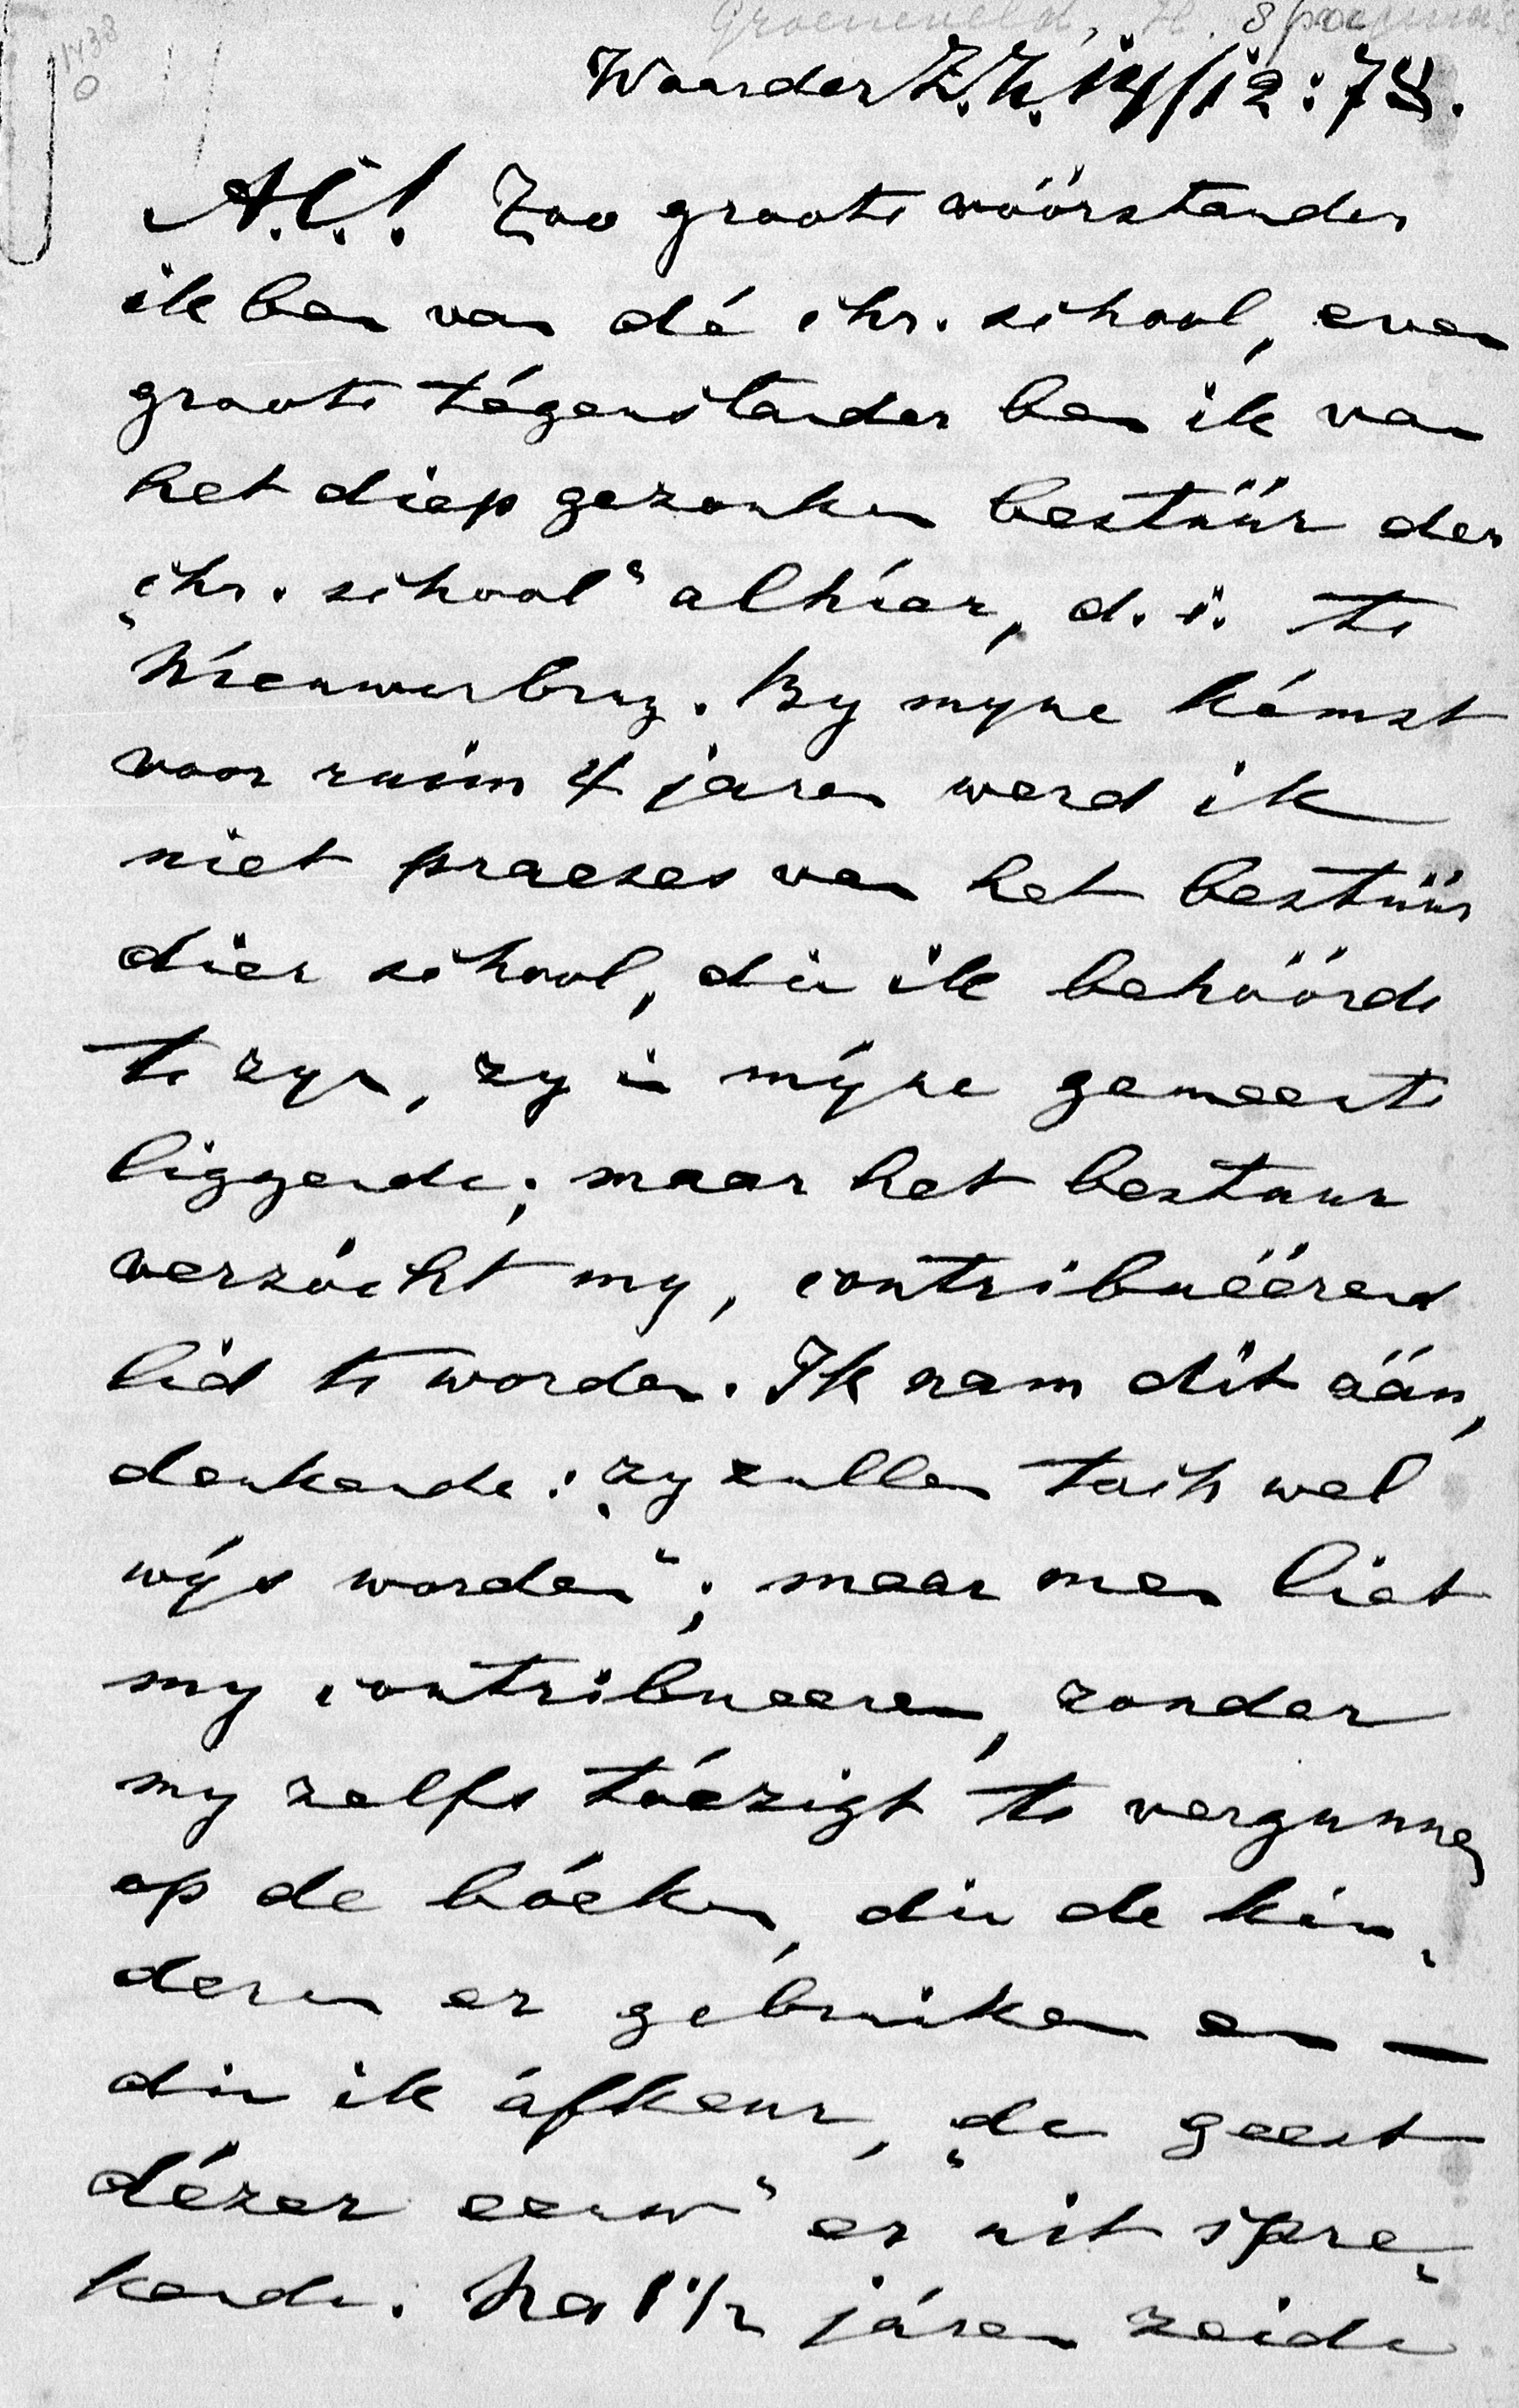 Groeneveld, H. 8 pagina's
1438
0
Waarder Z.H. 14/12:78.
A.C.! Zoo groote vóórstander
ik ben van dé chr. school, even
groote tégenstander ben ik van
het diep gezonken bestúúr der
„chr. school" alhíer, d. i. te
Nieuwerbrug. By myne kómst
voor ruim 4 jaren werd ik
niet praeses van het bestúúr
dier school, die ik behóórde
te zyn, zy in mýne gemeente
liggende; maar het bestuur
verzócht my, contribuéérend
lid te worden. Ik nam dit áán,
denkende: „zy zullen toch wel
wýs worden"; maar men liet
my contribueeren, zonder
my zelfs tóezigt te vergunnen
op de bóeken, die de kin-
deren er gebruiken en —
die ik áfkeur, „de geest
dézer eeuw" er uit spre-
kende. Na 1 1/2 járen zeide